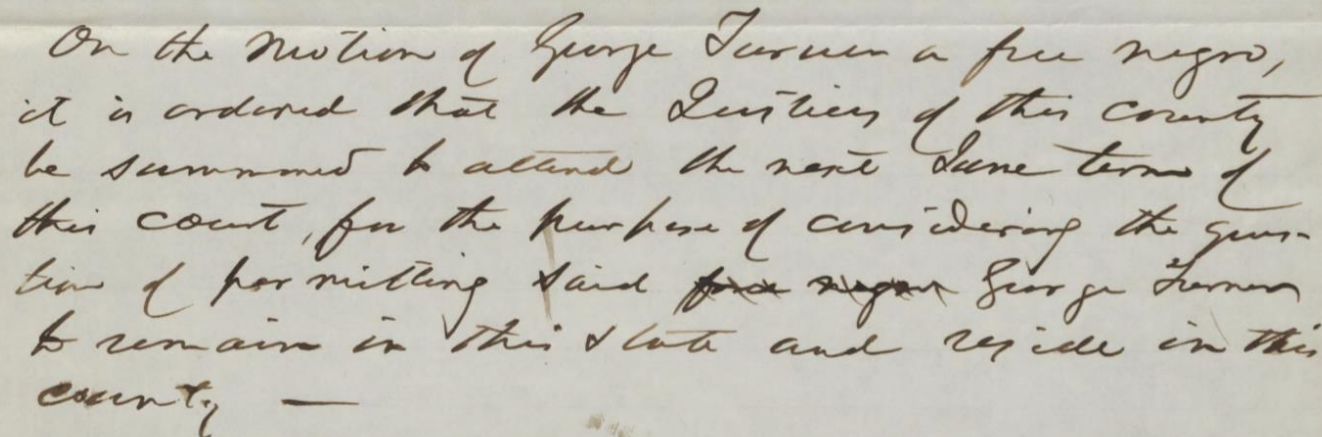 On the motion of George Turner a free negro,
it is ordered that the Justices of this county
be summoned to attend the next June term of
this court, for the purpose of considering the ques-
tion of permitting said free negro George Turner
to remain in this state and reside in this
county —